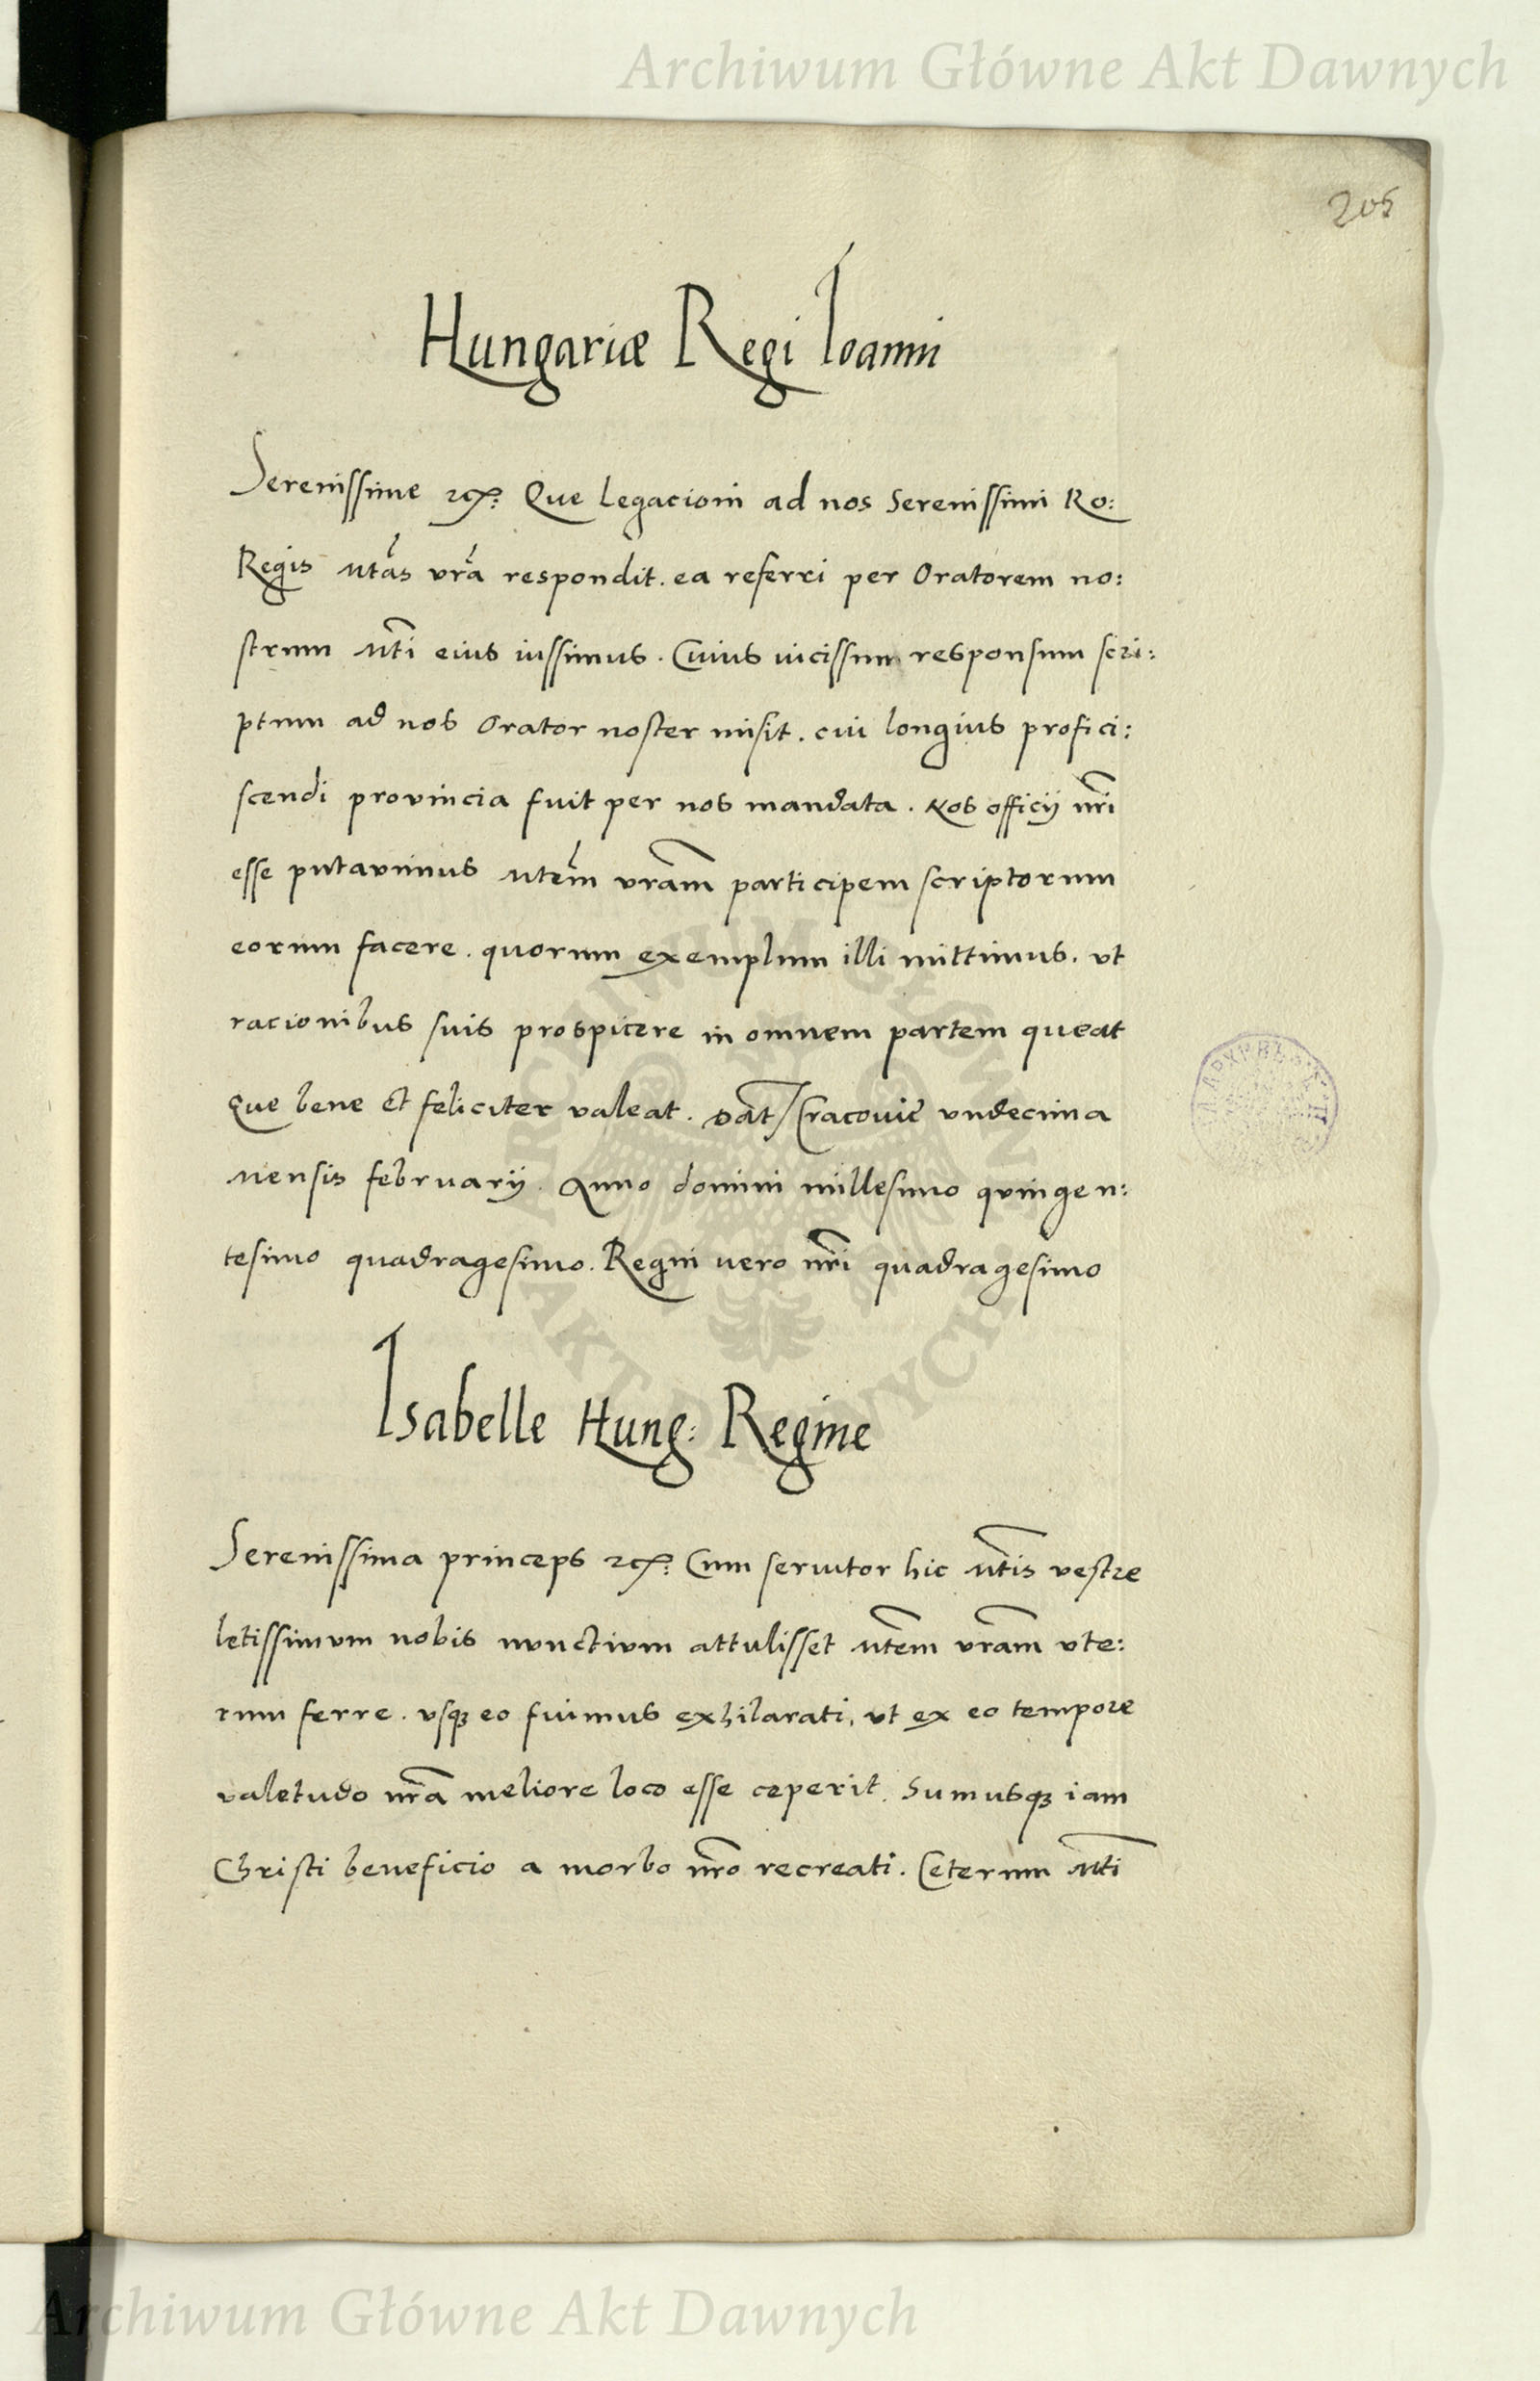 Archiwum Główne Akt Dawnych
205
Hungariæ Regi Ioanni
Serenissime etc: Que legacioni ad nos Serenissimi Ro:
Regis Mtas vra respondit. ea referri per Oratorem no:
strum Mti eius iussimus. Cuius vicissim responsum scri:
ptum ad nos Orator noster misit. cui longius profici:
scendi provincia fuit per nos mandata. Nos officij nri
esse putavimus Mtem vram participem scriptorum
eorum facere. quorum exemplum illi mittimus. vt
racionibus suis prospicere in omnem partem queat
Que bene et feliciter valeat. Dat Cracovie vndecima
mensis february. Anno domini millesimo qvingen:
tesimo quadragesimo. Regni vero nri quadragesimo
Isabelle Hung: Regine
Serenissima princeps etc: Cum servitor hic Mtis vestre
letissimvm nobis nvnctivm attulisset Mtem vram vte:
rum ferre. vsq; eo fuimus exhilarati, vt ex eo tempore
valetudo nra meliore loco esse ceperit. Sumusq; iam
Christi beneficio a morbo nro recreati. Ceterum Mti
ARCHIWUM GŁÓWNE AKT DAWNYCH
Archiwum Główne Akt Dawnych